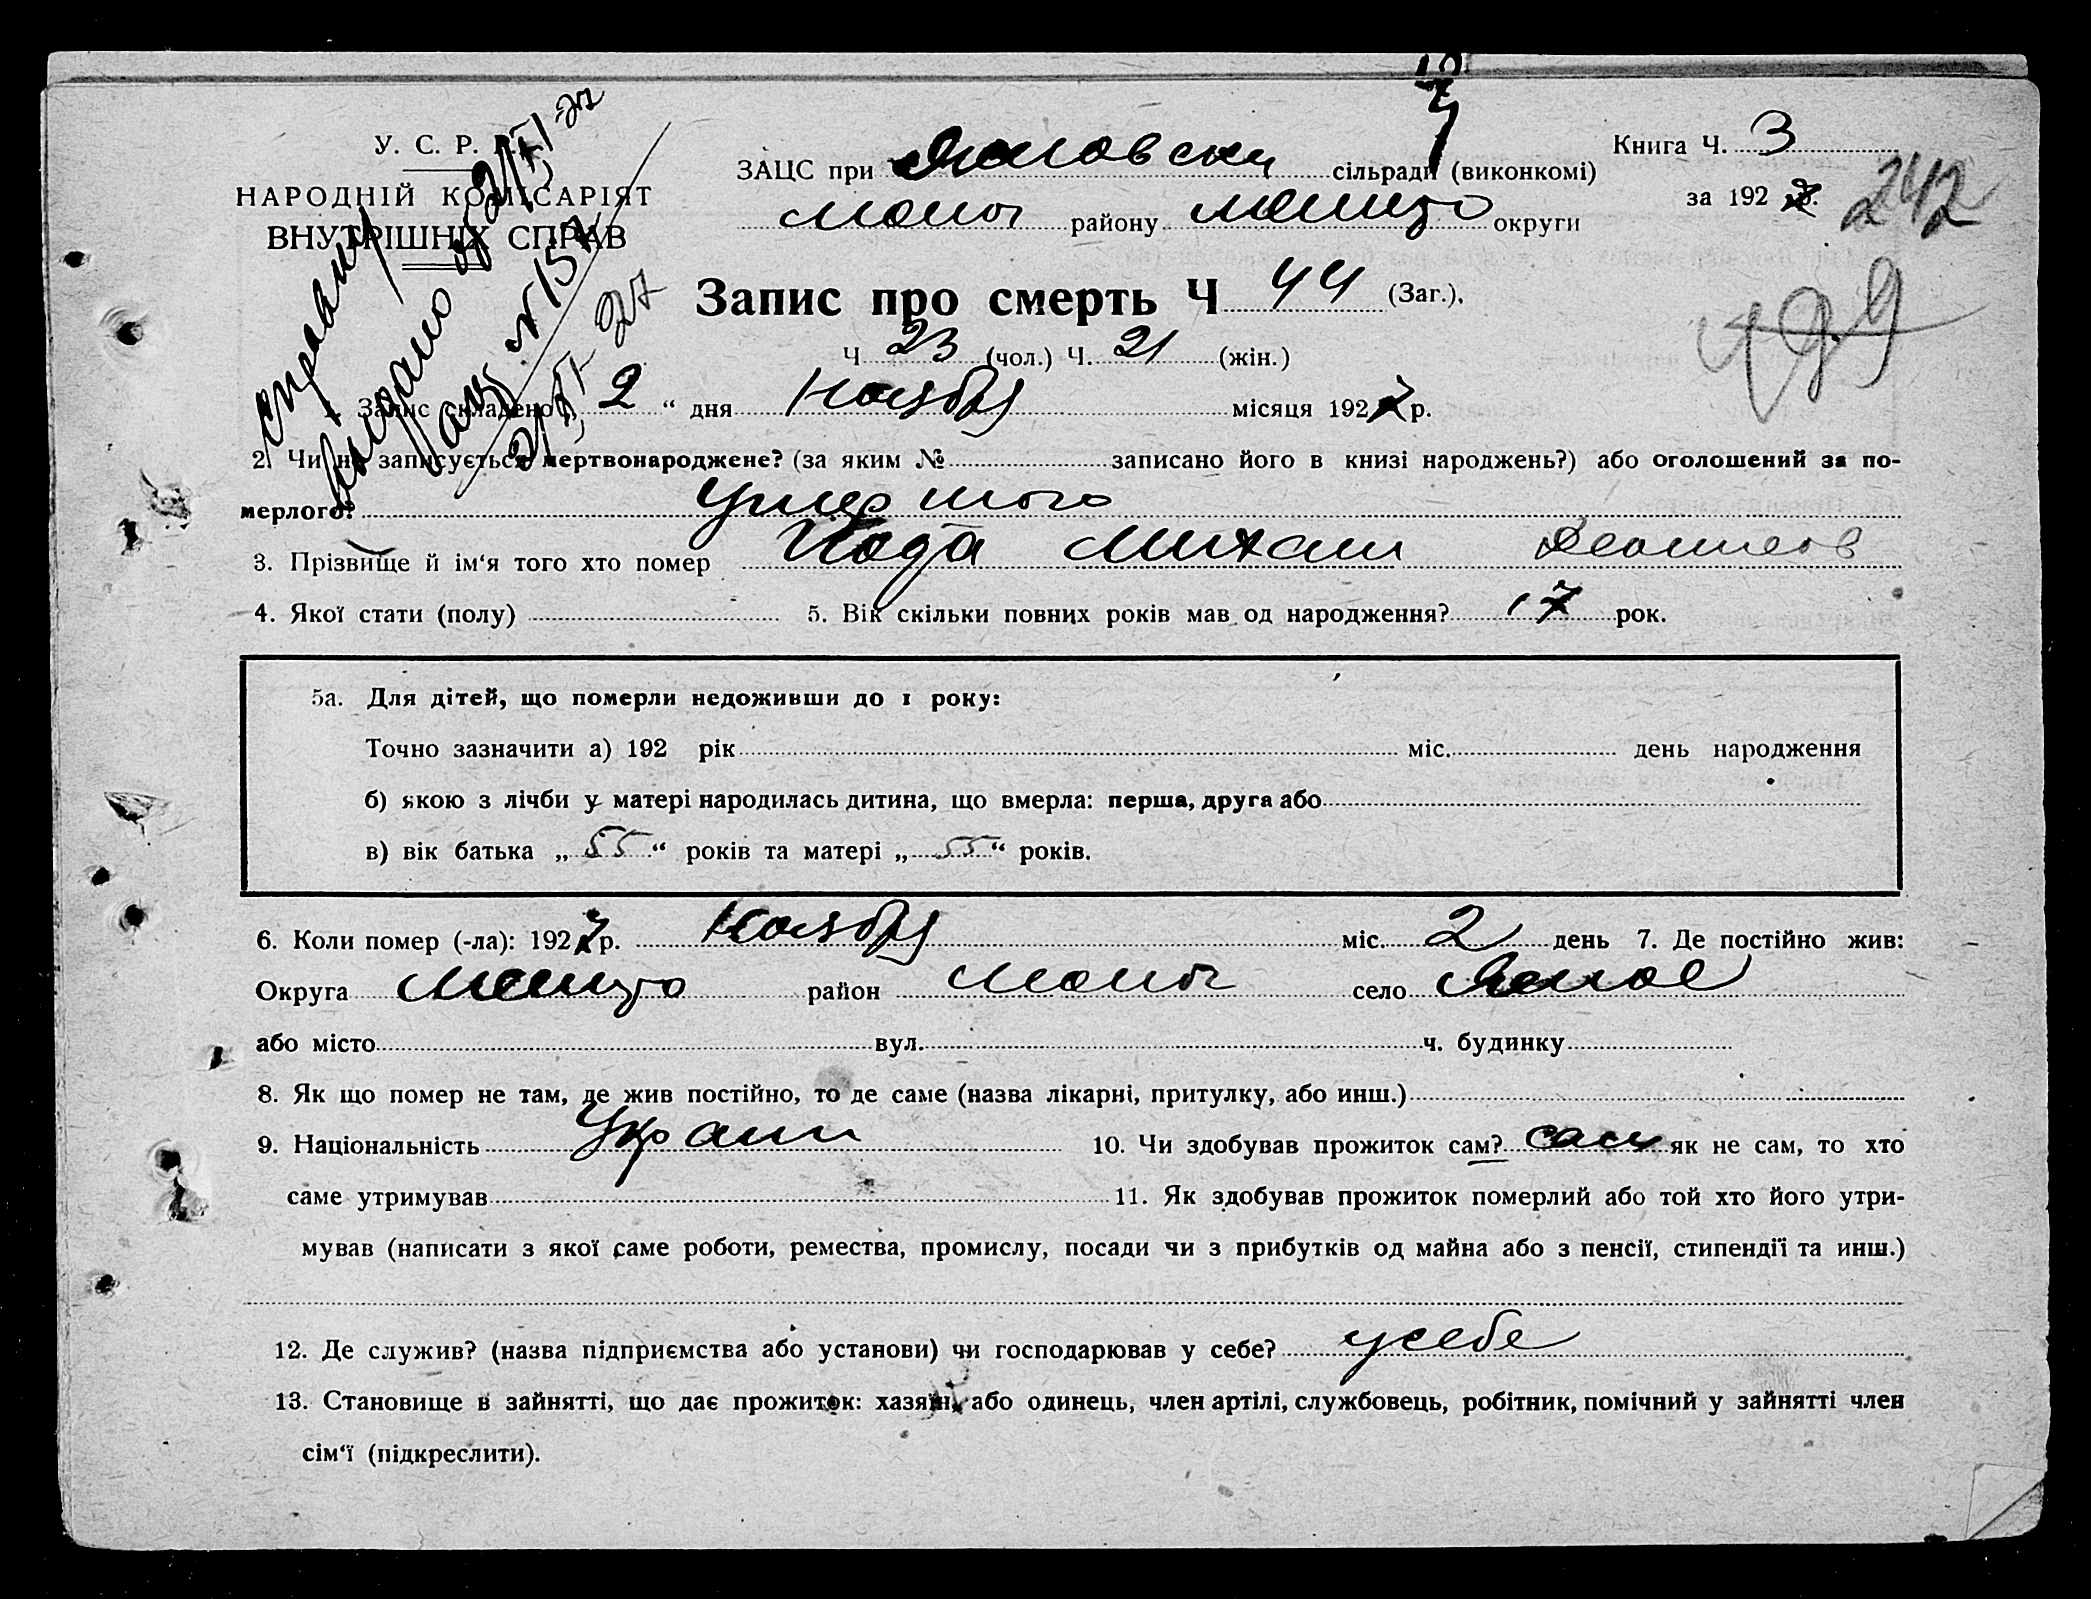 У. С. Р. Р.
НАРОДНІЙ КОМІСАРІЯТ
ВНУТРІШНІХ СПРАВ
справку
Видано
№ 157
27
ЗАЦС при сільради (виконкомі)
району округи
Книга Ч. 3
за 192 7 р.
242
Запис про смерть Ч 44 (Заг.).
Ч 23 (чол.) Ч. 21 (жін.)
1. Запис складено „ 2 “ дня Ноября місяця 192 7 р.
2. Чи не записується мертвонароджене? (за яким № записано його в книзі народжень?) або оголошений за по-
мерлого? Умершого
3. Прізвище й ім‘я того хто помер Михаил
4. Якої стати (полу) 5. Вік скільки повних років мав од народження? 17 рок.
5а. Для дітей, що померли недоживши до 1 року:
Точно зазначити а) 192 рік міс. день народження
б) якою з лічби у матері народилась дитина, що вмерла: перша, друга або
в) вік батька „ 55 “ років та матері „ 55 “ років.
6. Коли помер (-ла): 192 7 р. Ноября міс. 2 день 7. Де постійно жив:
Округа район село
або місто вул. ч. будинку
8. Як що помер не там, де жив постійно, то де саме (назва лікарні, притулку, або инш.)
9. Національність Украин 10. Чи здобував прожиток сам? сам як не сам, то хто
саме утримував 11. Як здобував прожиток померлий або той хто його утри-
мував (написати з якої саме роботи, ремества, промислу, посади чи з прибутків од майна або з пенсії, стипендії та инш.)
12. Де служив? (назва підприємства або установи) чи господарював у себе? у себе
13. Становище в зайнятті, що дає прожиток: хазяїн, або одинець, член артілі, службовець, робітник, помічний у зайнятті член
сім‘ї (підкреслити).